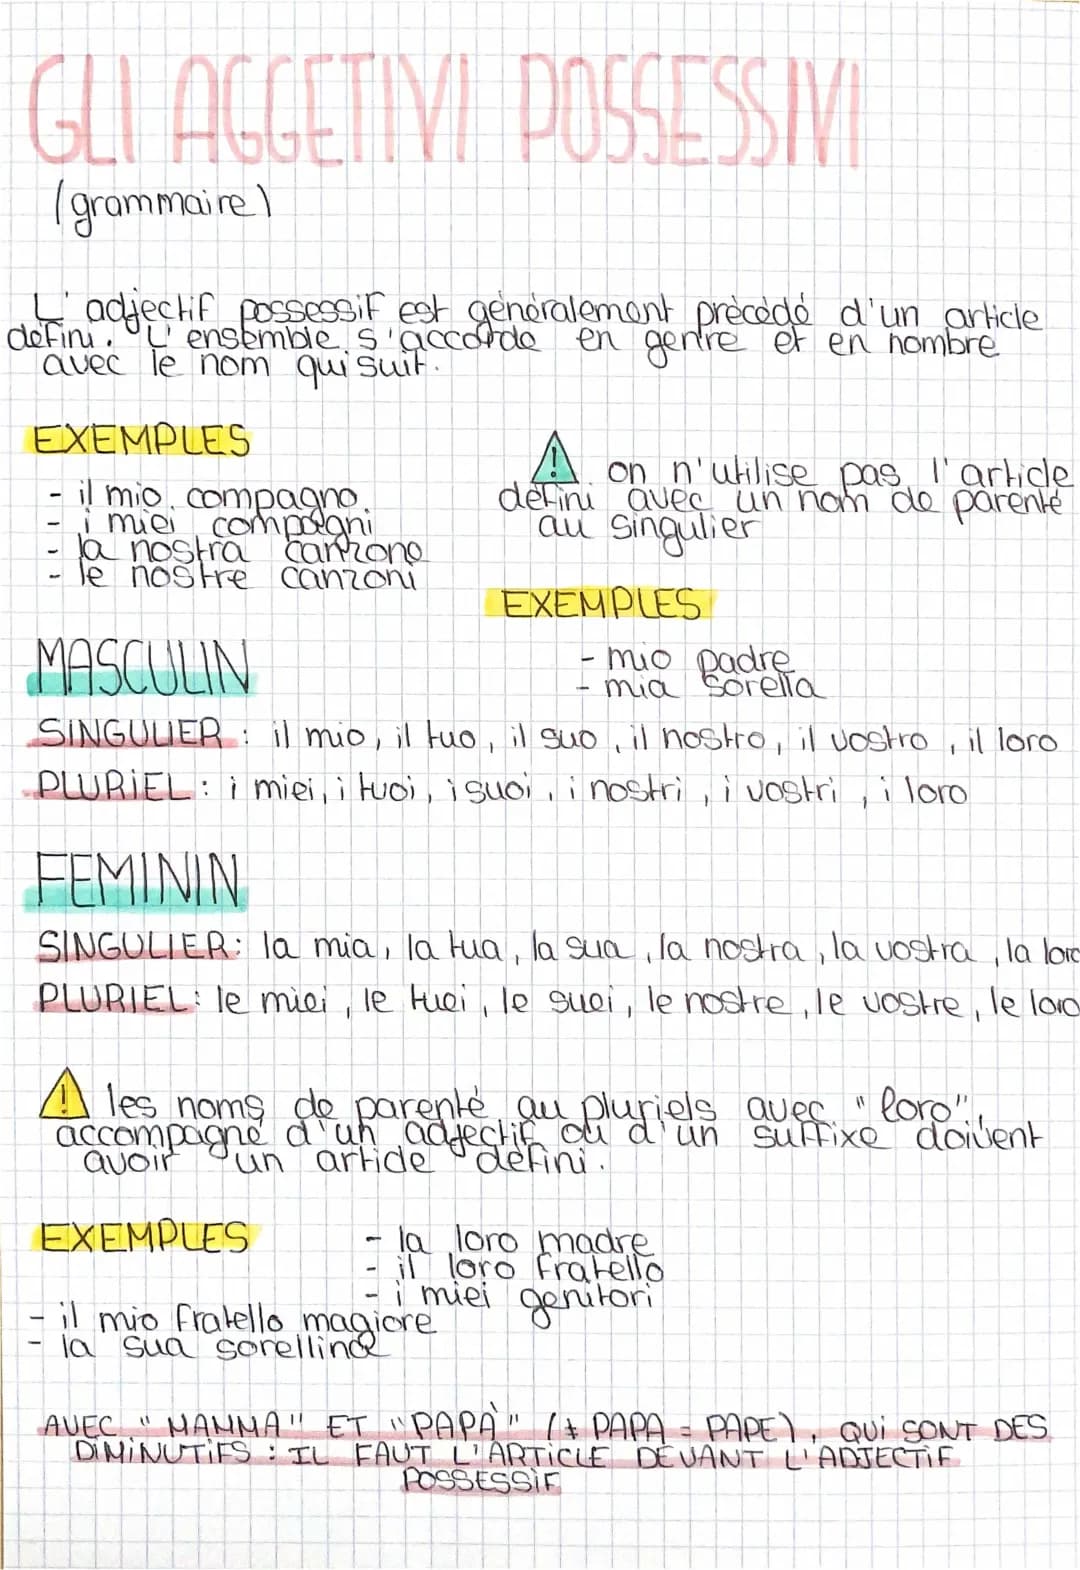 GLI AGGETIVI POSSESSIVI
(grammaire)
L'adjectif possessif est généralement précédé d'un article
défini. L'ensemble s'accorde en genre et en nombre
avec le nom qui suit.
EXEMPLES
- il mio compagno.
- i miei compagni
- la nostra canzone
- le nostre canzoni
⚠ on n'utilise pas l'article
défini avec un nom de parenté
au singulier
EXEMPLES
- mio padre
- mia sorella
MASCULIN
SINGULIER : il mio, il tuo, il suo, il nostro, il vostro, il loro
PLURIEL : i miei, i tuoi, i suoi, i nostri, i vostri, i loro
FEMININ
SINGULIER: la mia, la tua, la sua, la nostra, la vostra, la loro
PLURIEL: le miei, le tuei, le suei, le nostre, le vostre, le loro
⚠ les noms de parenté au pluriels avec "loro",
accompagné d'un adjectif ou d'un suffixe doivent
avoir un article défini.
EXEMPLES
- la loro madre
- il loro fratello
- i miei genitori
- il mio fratello magiore
- la sua sorellina
AVEC "MAMMA" ET "PAPÀ" (≠ PAPA = PAPE), QUI SONT DES
DIMINUTIFS : IL FAUT L'ARTICLE DEVANT L'ADJECTIF
POSSESSIF